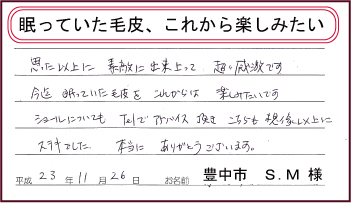 眠っていた毛皮、これから楽しみたい
思った以上に 素敵に出来上って 超々感激です
今迄 眠っていた毛皮を これからは 楽しみたいです
ショールについても Telでアドバイス 頂き こちらも 想像以上に
ステキでした 本当に ありがとうございます。
平成 23 年 11 月 26 日 お名前 豊中市 S.M 様